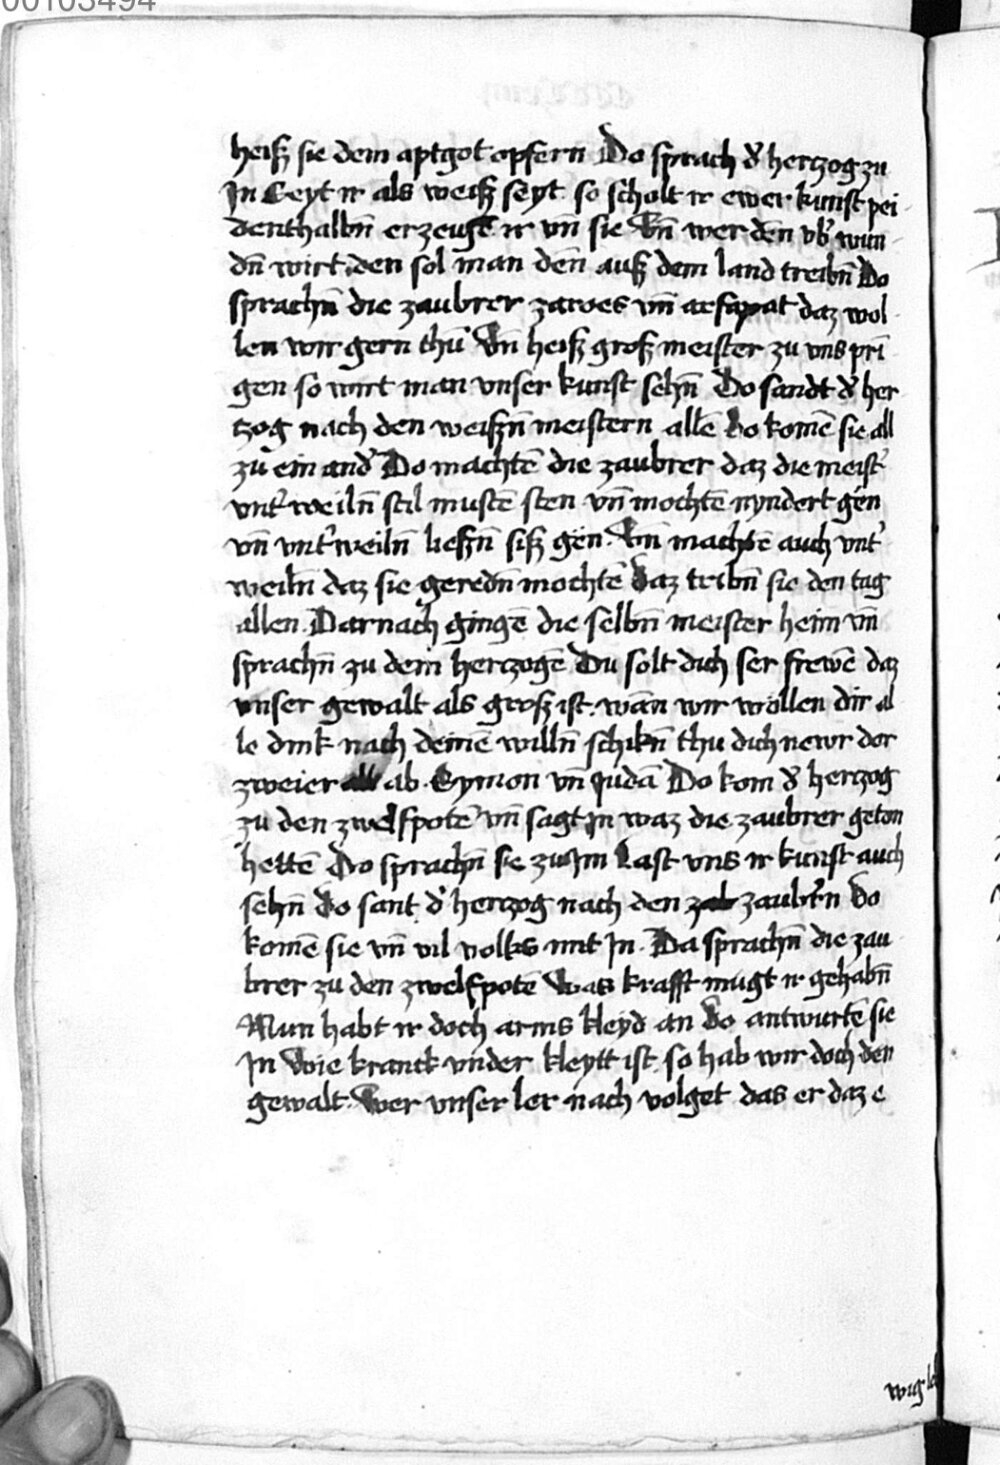 00103494
heiß sie dem aptgot opfern Do sprach d̕ hertzog zu
Jn Seyt ir als weiß seyt so scholt ir ewer kunst pei
denthalbn̄ erzeuge ir vn̄ sie Vn̄ werden vb̕ wun
dn̄ wirt den sol man den auß dem land treibn̄ Do
sprachn̄ die zaubrer zaroes vn̄ arfapat daz wol
len wir gern thū Vn̄ heiß groß meister zu vns pri
gen so wirt man vnser kunst sehn̄ Do sandt d̕ her
tzog nach den weißn̄ meistern allē do komē sie all
zu ein and̕ Do machtē die zaubrer daz die meist̕
vnt̕ weiln̄ stil mustē sten vn̄ mochtē nyndert gen
vn̄ vnt̕ weiln̄ ließn̄ siß gen. Vn̄ machtē auch vnt̕
weiln̄ daz sie geredn̄ mochtē daz tribn̄ sie den tag
allen. Darnach gingē die selbn̄ meister heim vn̄
sprachn̄ zu dem hertzogē Du solt dich ser frewē daz
vnser gewalt als groß ist. wan wir wollen dir al
le dink nach deinē willn̄ schikn̄ thu dich newr der
zweier ab. Symon vn̄ Judā Do kom d̕ hertzog
zu den zwelfpotē vn̄ sagt Jn waz die zaubrer geton
hettē Do sprachn̄ sie zu Jm Last vns ir kunst auch
sehn̄ Do sant d̕ hertzog nach den zaubr̄n Do
komē sie vn̄ vil volks mit Jn. Da sprachn̄ die zau
brer zu den zwelfpotē Was krafft mugt ir gehabn̄
Nun habt ir doch arms kleyd an do antwurtē sie
Jn Wie kranck vnder kleytt ist so hab wir doch den
gewalt. Wer vnser ler nach volget das er daz e